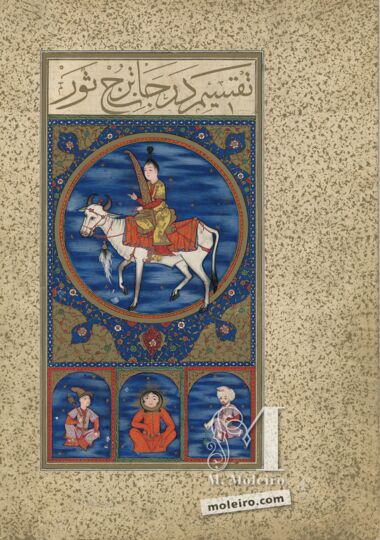 تقسيم درجات برج ثور
M
M. Moleiro
moleiro.com